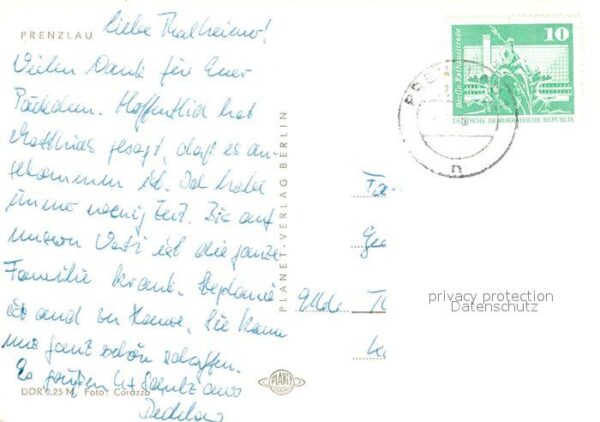 PRENZLAU
Liebe Thalheimer!
Vielen Dank für Euer
Päckchen. Hoffentlich hat
Matthias gesagt, daß es an-
gekommen ist. Ich habe
immer wenig Zeit. Bis auf
unsern Vati ist die ganze
Familie krank. Stephanie
ist auch zu Hause. Sie kann
uns ganz schön schaffen.
Es grüßen
DDR 0,25 M Foto: Corazza
PLANET-VERLAG BERLIN
PLANET
10
Berlin-Rathausstraße
DEUTSCHE DEMOKRATISCHE REPUBLIK
PREN
n
privacy protection
Datenschutz